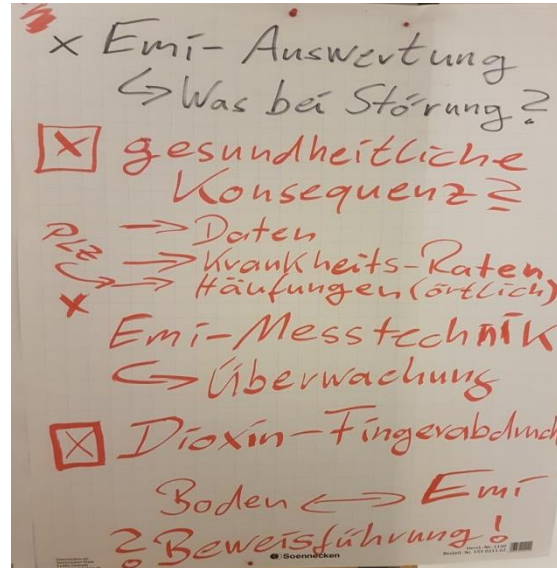 x Emi-Auswertung
↳ Was bei Störung?
☒ gesundheitliche
Konsequenz?
→ Daten
PLZ → Krankheits-Raten
↳ → Häufungen (örtlich)
x
Emi-Messtechnik
↳ Überwachung
☒ Dioxin-Fingerabdruck
Boden ↔ Emi
? Beweisführung!
Soennecken